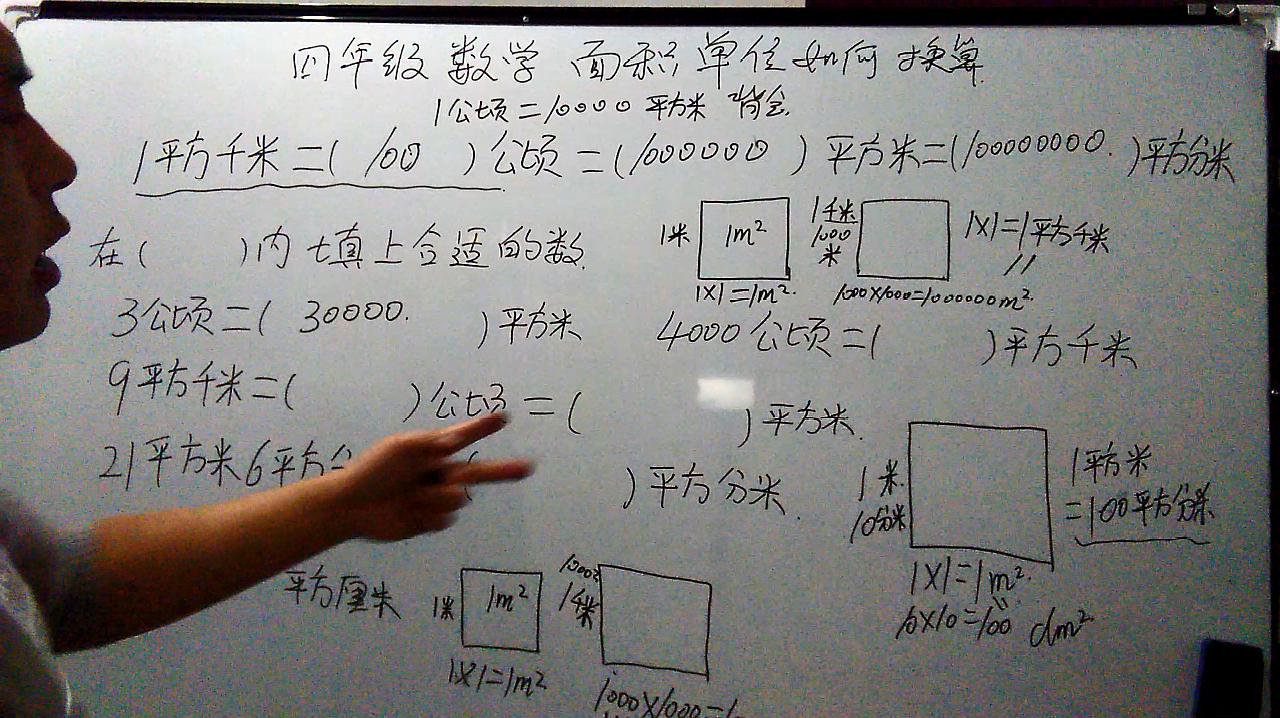 四年级 数学 面积单位如何换算
1公顷=10000平方米 背会
1平方千米=( 100 )公顷=(1000000 )平方米=(100000000. )平方分米
在( )内填上合适的数
1米
1m²
1X1=1m².
1千米
1000
米
1X1=1平方千米
1000X1000=1000000m².
3公顷=( 30000. )平方米
4000公顷=( )平方千米
9平方千米=( )公顷=( )平方米.
21平方米6平方分
( )平方分米.
1米
10分米
1平方米
=100平方分米
1X1=1m².
10X10=100 dm²
平方厘米
1米
1m²
1X1=1m²
1千米
1000X1000=1